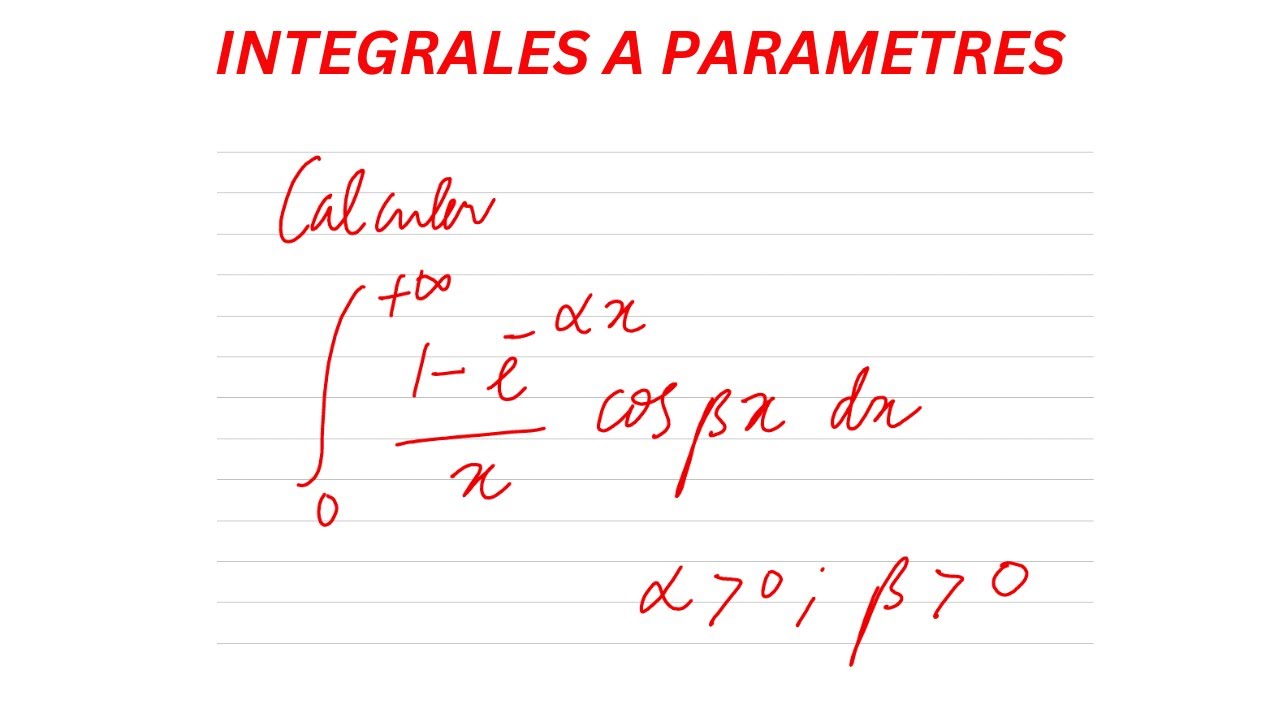 INTEGRALES A PARAMETRES
Calculer
∫₀^{+∞} (1 - e^{-αx})/x cos βx dx
α > 0 ; β > 0